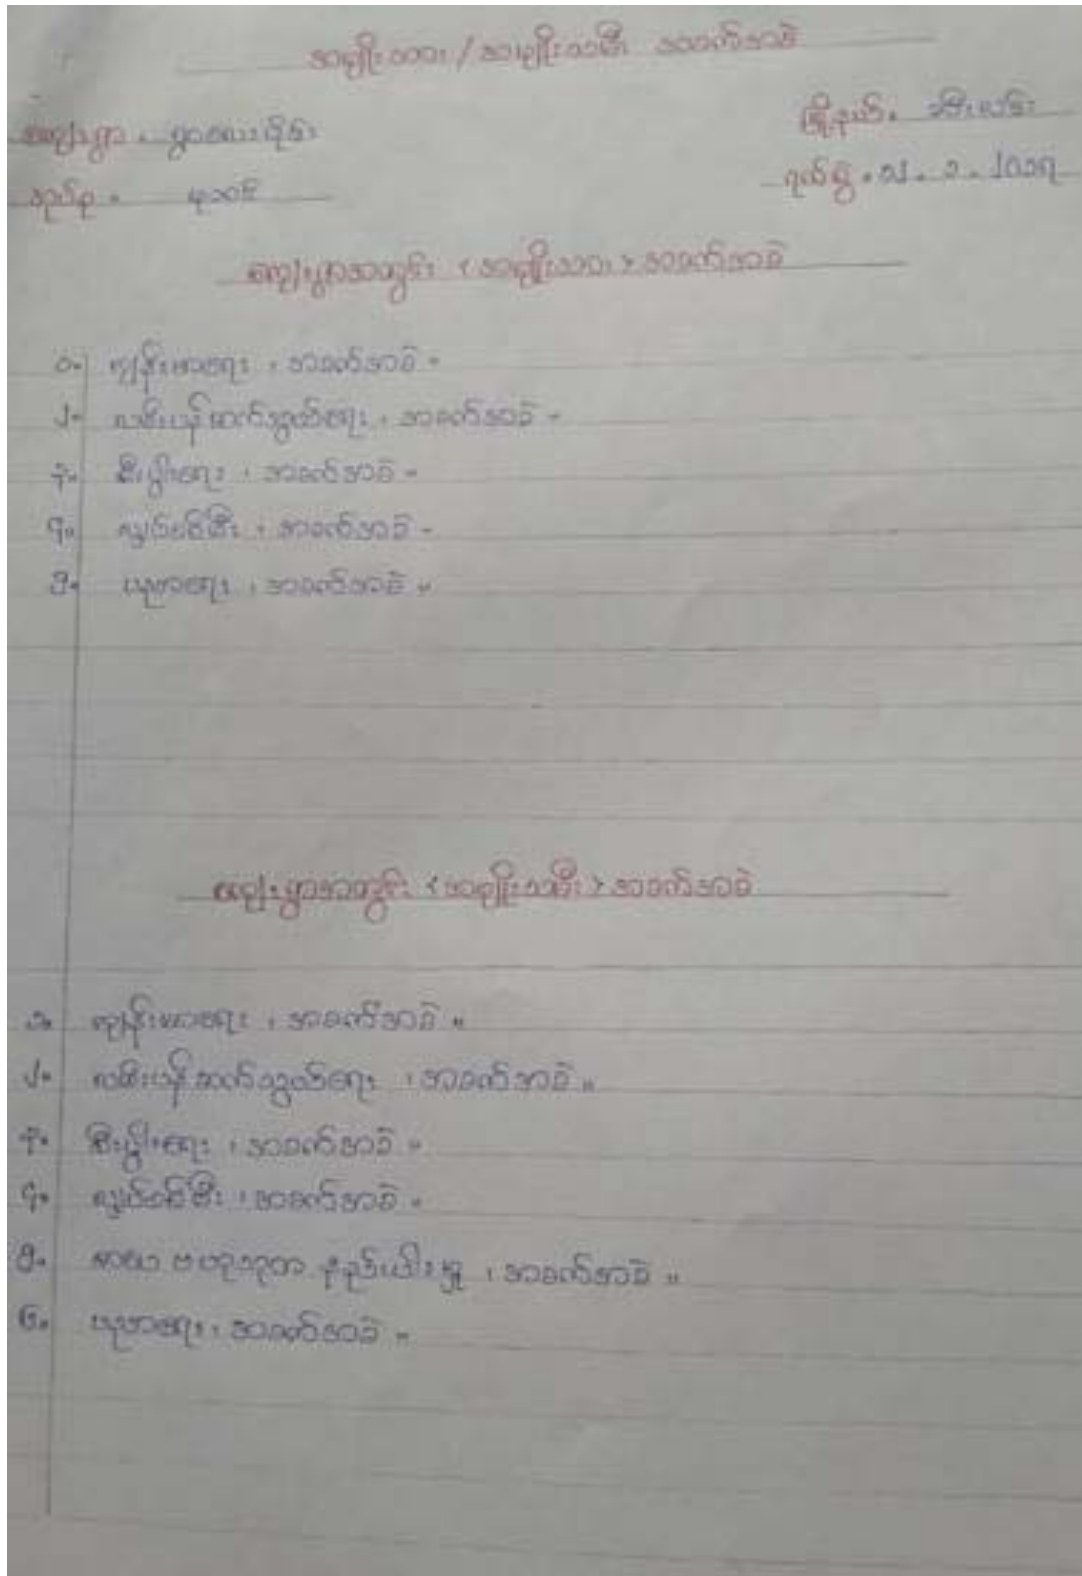 အမျိုးသား / အမျိုးသမီး အခက်အခဲ
ကျေးရွာ - ရွာလေး မြို့နယ် -
အုပ်စု - ရက်စွဲ - ၁ - ၂၀၁၇
ကျေးရွာအတွင်း < အမျိုးသား > အခက်အခဲ
၁။ ကျန်းမာရေး ၊ အခက်အခဲ ။
၂။ လမ်းပန်းဆက်သွယ်ရေး ၊ အခက်အခဲ ။
၃။ စီးပွါးရေး ၊ အခက်အခဲ ။
၄။ လျှပ်စစ်မီး ၊ အခက်အခဲ ။
၅။ ပညာရေး ၊ အခက်အခဲ ။
ကျေးရွာအတွင်း < အမျိုးသမီး > အခက်အခဲ
၁။ ကျန်းမာရေး ၊ အခက်အခဲ ။
၂။ လမ်းပန်းဆက်သွယ်ရေး ၊ အခက်အခဲ ။
၃။ စီးပွါးရေး ၊ အခက်အခဲ ။
၄။ လျှပ်စစ်မီး ၊ အခက်အခဲ ။
၅။ စာပေ ဗဟုသုတ နှံ့နည်းပါးမှု ၊ အခက်အခဲ ။
၆။ ပညာရေး ၊ အခက်အခဲ ။